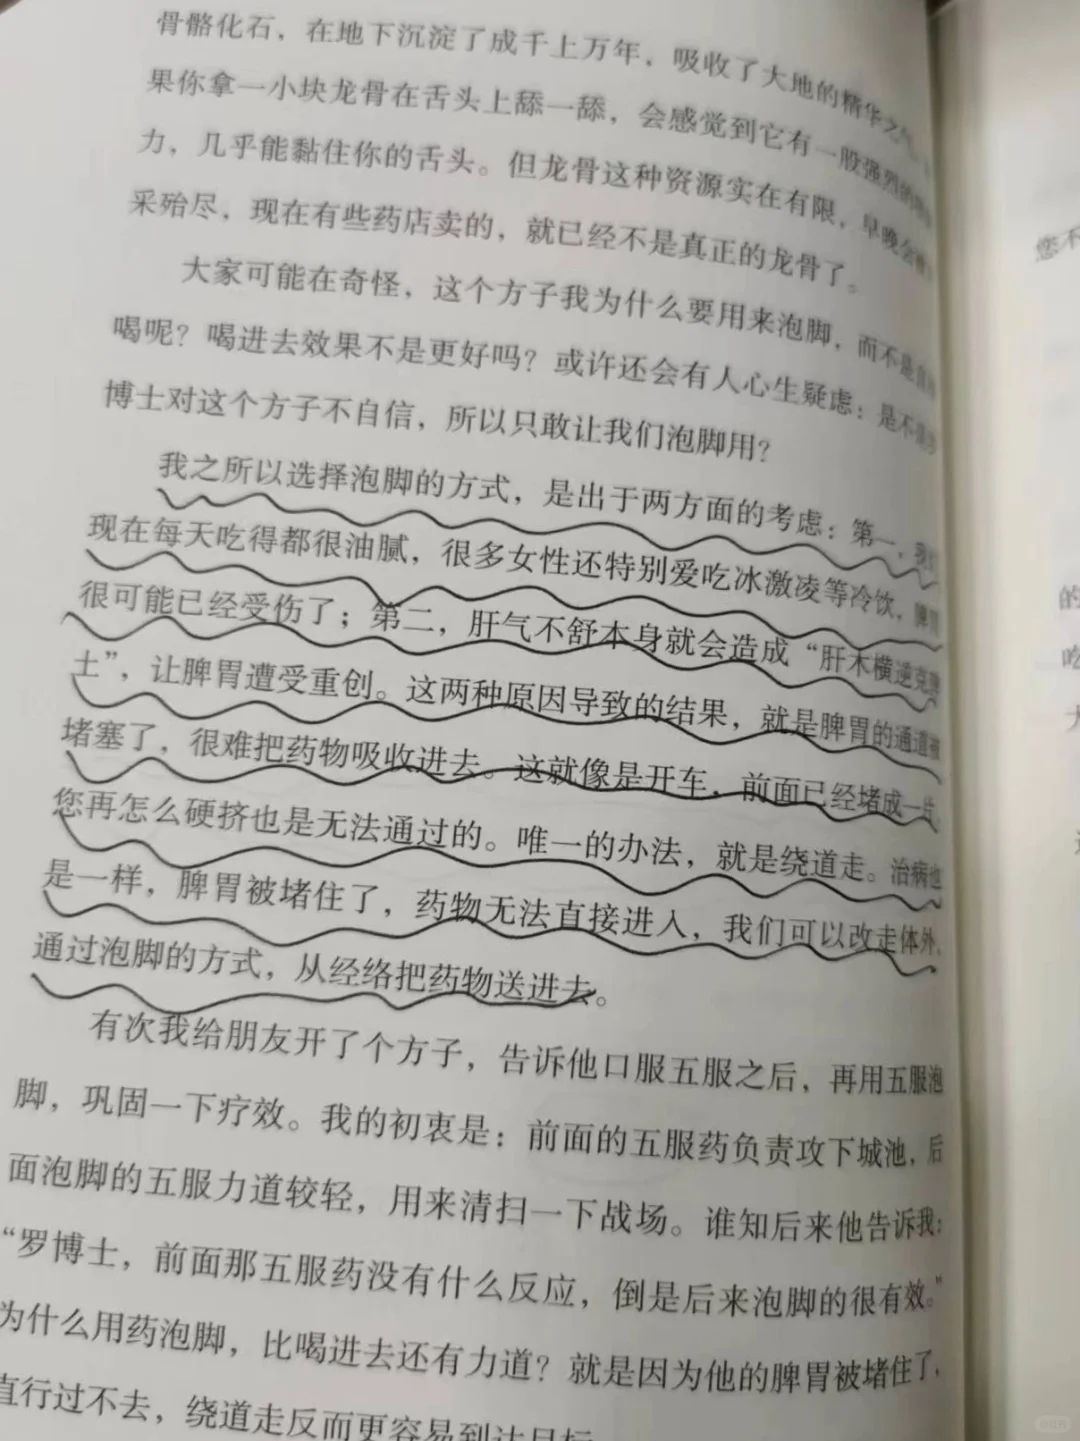 骨骼化石，在地下沉淀了成千上万年，吸收了大地的精华之气。
果你拿一小块龙骨在舌头上舔一舔，会感觉到它有一股强烈的
力，几乎能黏住你的舌头。但龙骨这种资源实在有限，早晚会被
采殆尽，现在有些药店卖的，就已经不是真正的龙骨了。
大家可能在奇怪，这个方子我为什么要用来泡脚，而不是直接
喝呢？喝进去效果不是更好吗？或许还会有人心生疑虑：是不是
博士对这个方子不自信，所以只敢让我们泡脚用？
我之所以选择泡脚的方式，是出于两方面的考虑：第一，我们
现在每天吃得都很油腻，很多女性还特别爱吃冰激凌等冷饮，脾胃
很可能已经受伤了；第二，肝气不舒本身就会造成“肝木横逆克脾
土”，让脾胃遭受重创。这两种原因导致的结果，就是脾胃的通道被
堵塞了，很难把药物吸收进去。这就像是开车，前面已经堵成一片，
您再怎么硬挤也是无法通过的。唯一的办法，就是绕道走。治病也
是一样，脾胃被堵住了，药物无法直接进入，我们可以改走体外，
通过泡脚的方式，从经络把药物送进去。
有次我给朋友开了个方子，告诉他口服五服之后，再用五服泡
脚，巩固一下疗效。我的初衷是：前面的五服药负责攻下城池，后
面泡脚的五服力道较轻，用来清扫一下战场。谁知后来他告诉我：
“罗博士，前面那五服药没有什么反应，倒是后来泡脚的很有效。”
为什么用药泡脚，比喝进去还有力道？就是因为他的脾胃被堵住了，
直行过不去，绕道走反而更容易到达目标
您不
的
吃